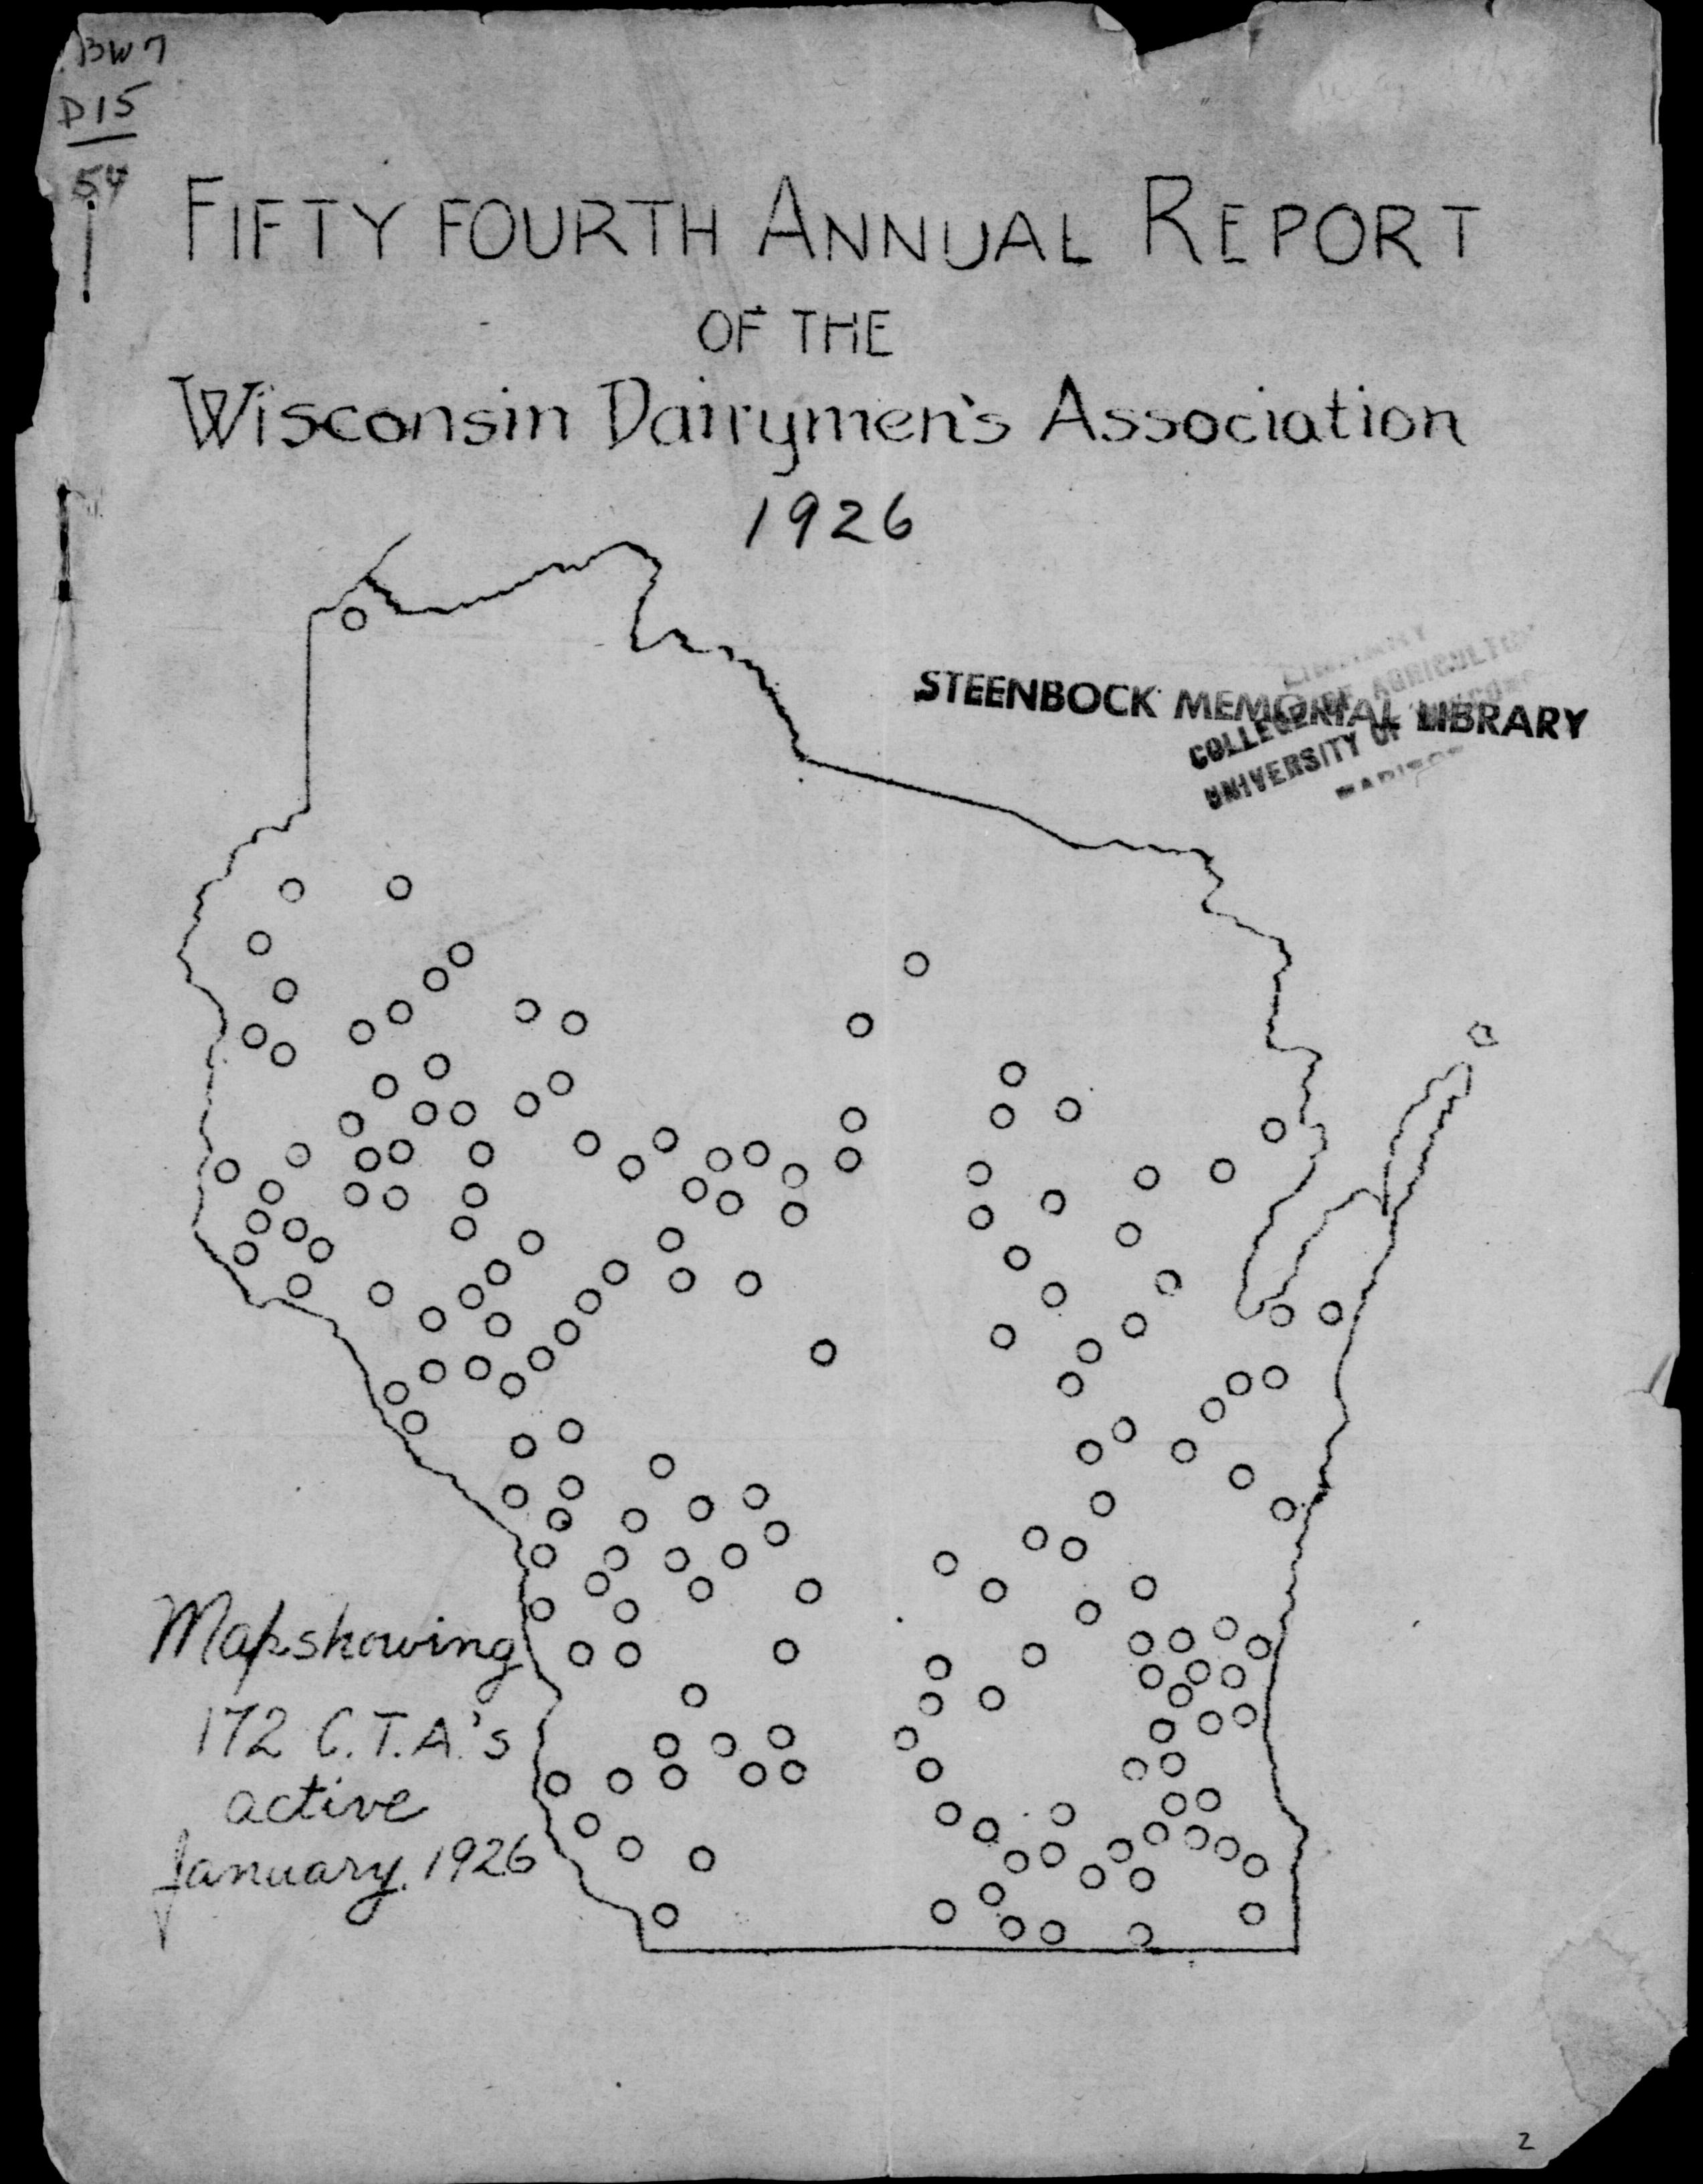 BW7
D15
54
FIFTY FOURTH ANNUAL REPORT
OF THE
Wisconsin Dairymen's Association
1926
STEENBOCK MEMORIAL LIBRARY
COLLEGE OF AGRICULTURE
UNIVERSITY OF
Map showing
172 C.T.A.'s
active
January 1926
2